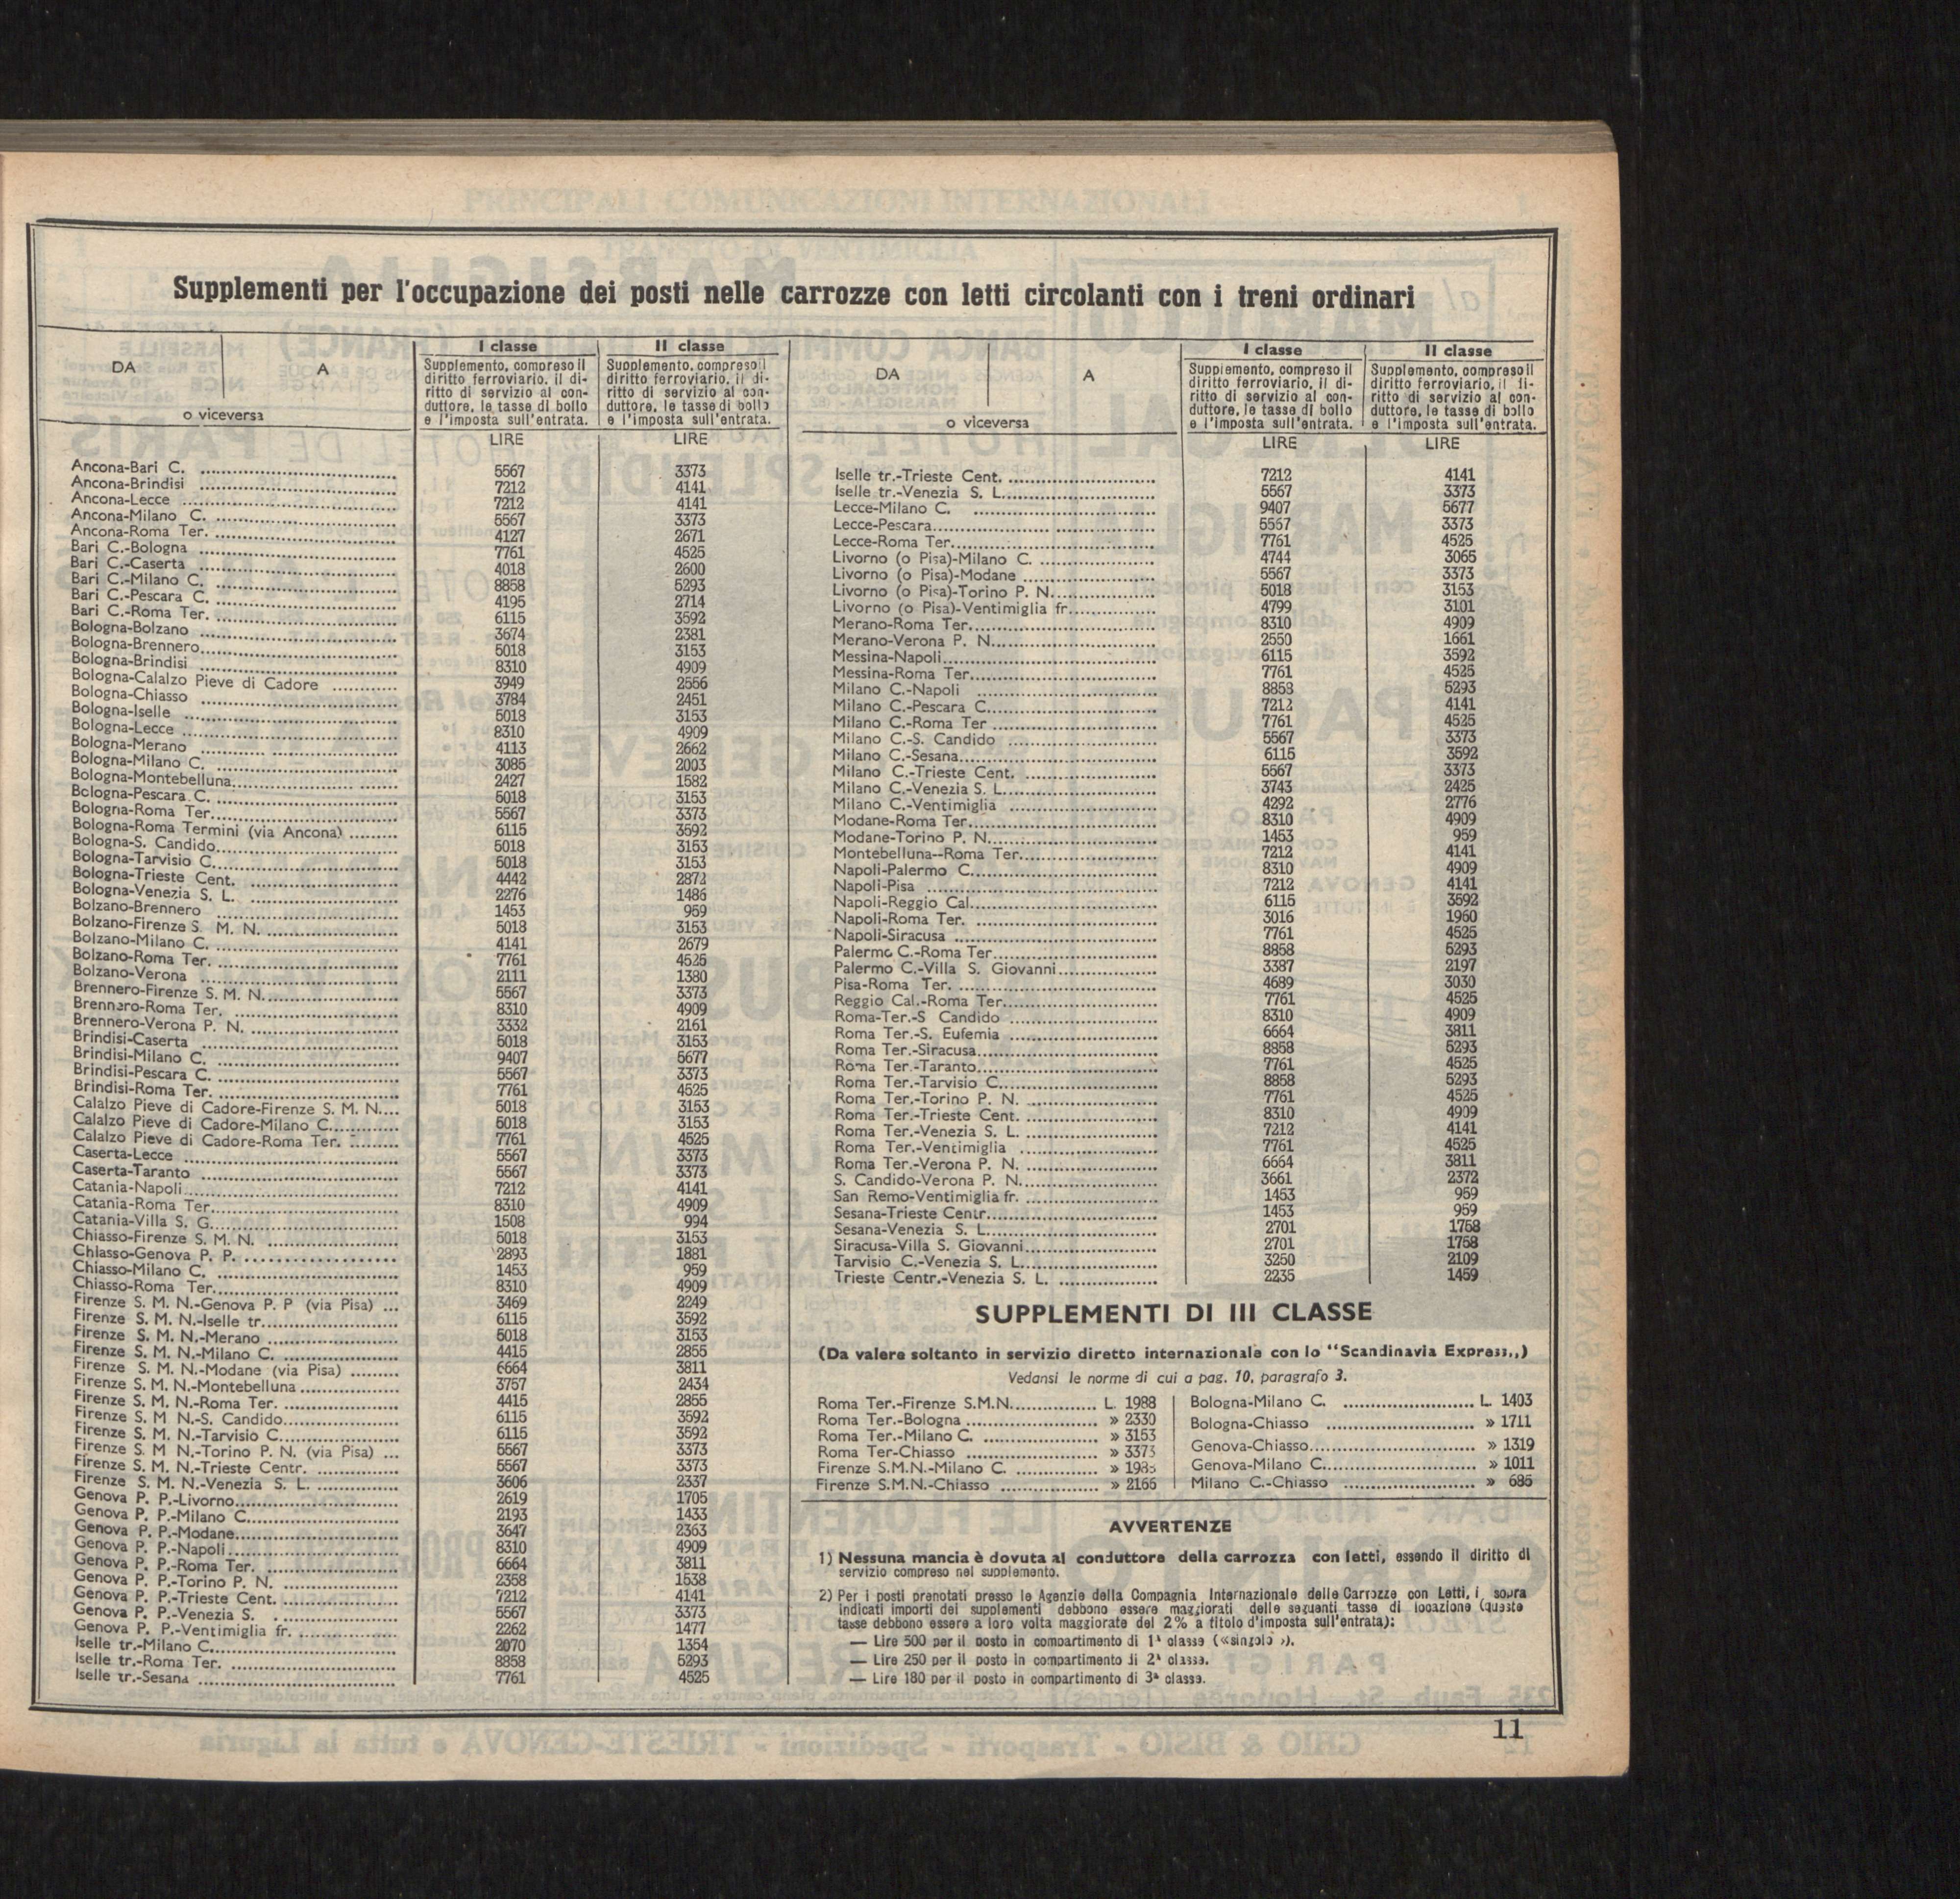 Supplementi per l'occupazione dei posti nelle carrozze con letti circolanti con i treni ordinari
DA A
o viceversa
I classe
Supplemento, compreso il
diritto ferroviario, il di-
ritto di servizio al con-
duttore, le tasse di bollo
e l'imposta sull'entrata.
LIRE
II classe
Supplemento, compreso il
diritto ferroviario, il di-
ritto di servizio al con-
duttore, le tasse di bollo
e l'imposta sull'entrata.
LIRE
Ancona-Bari C. 5567 3373
Ancona-Brindisi 7212 4141
Ancona-Lecce 7212 4141
Ancona-Milano C. 5567 3373
Ancona-Roma Ter. 4127 2671
Bari C.-Bologna 7761 4525
Bari C.-Caserta 4018 2600
Bari C.-Milano C. 8858 5293
Bari C.-Pescara C. 4195 2714
Bari C.-Roma Ter. 6115 3592
Bologna-Bolzano 3674 2381
Bologna-Brennero 5018 3153
Bologna-Brindisi 8310 4909
Bologna-Calalzo Pieve di Cadore 3949 2556
Bologna-Chiasso 3784 2451
Bologna-Iselle 5018 3153
Bologna-Lecce 8310 4909
Bologna-Merano 4113 2662
Bologna-Milano C. 3085 2003
Bologna-Montebelluna 2427 1582
Bologna-Pescara C. 5018 3153
Bologna-Roma Ter. 5567 3373
Bologna-Roma Termini (via Ancona) 6115 3592
Bologna-S. Candido 5018 3153
Bologna-Tarvisio C. 5018 3153
Bologna-Trieste Cent. 4442 2872
Bologna-Venezia S. L. 2276 1486
Bolzano-Brennero 1453 959
Bolzano-Firenze S. M. N. 5018 3153
Bolzano-Milano C. 4141 2679
Bolzano-Roma Ter. 7761 4525
Bolzano-Verona 2111 1380
Brennero-Firenze S. M. N. 5567 3373
Brennero-Roma Ter. 8310 4909
Brennero-Verona P. N. 3332 2161
Brindisi-Caserta 5018 3153
Brindisi-Milano C. 9407 5677
Brindisi-Pescara C. 5567 3373
Brindisi-Roma Ter. 7761 4525
Calalzo Pieve di Cadore-Firenze S. M. N. 5018 3153
Calalzo Pieve di Cadore-Milano C. 5018 3153
Calalzo Pieve di Cadore-Roma Ter. 7761 4525
Caserta-Lecce 5567 3373
Caserta-Taranto 5567 3373
Catania-Napoli 7212 4141
Catania-Roma Ter. 8310 4909
Catania-Villa S. G. 1508 994
Chiasso-Firenze S. M. N. 5018 3153
Chiasso-Genova P. P. 2893 1881
Chiasso-Milano C. 1453 959
Chiasso-Roma Ter. 8310 4909
Firenze S. M. N.-Genova P. P (via Pisa) 3469 2249
Firenze S. M. N.-Iselle tr. 6115 3592
Firenze S. M. N.-Merano 5018 3153
Firenze S. M. N.-Milano C. 4415 2855
Firenze S. M. N.-Modane (via Pisa) 6664 3811
Firenze S. M. N.-Montebelluna 3757 2434
Firenze S. M. N.-Roma Ter. 4415 2855
Firenze S. M N.-S. Candido 6115 3592
Firenze S. M. N.-Tarvisio C. 6115 3592
Firenze S. M N.-Torino P. N. (via Pisa) 5567 3373
Firenze S. M. N.-Trieste Centr. 5567 3373
Firenze S. M. N.-Venezia S. L. 3606 2337
Genova P. P.-Livorno 2619 1705
Genova P. P.-Milano C. 2193 1433
Genova P. P.-Modane 3647 2363
Genova P. P.-Napoli 8310 4909
Genova P. P.-Roma Ter. 6664 3811
Genova P. P.-Torino P. N. 2358 1538
Genova P. P.-Trieste Cent. 7212 4141
Genova P. P.-Venezia S. . 5567 3373
Genova P. P.-Ventimiglia fr. 2262 1477
Iselle tr.-Milano C. 2070 1354
Iselle tr.-Roma Ter. 8858 5293
Iselle tr.-Sesana 7761 4525
DA A
o viceversa
I classe
Supplemento, compreso il
diritto ferroviario, il di-
ritto di servizio al con-
duttore, le tasse di bollo
e l'imposta sull'entrata.
LIRE
II classe
Supplemento, compreso il
diritto ferroviario, il fi-
ritto di servizio al con-
duttore, le tasse di bollo
e l'imposta sull'entrata.
LIRE
Iselle tr.-Trieste Cent. 7212 4141
Iselle tr.-Venezia S. L. 5567 3373
Lecce-Milano C. 9407 5677
Lecce-Pescara 5567 3373
Lecce-Roma Ter. 7761 4525
Livorno (o Pisa)-Milano C. 4744 3065
Livorno (o Pisa)-Modane 5567 3373
Livorno (o Pisa)-Torino P. N. 5018 3153
Livorno (o Pisa)-Ventimiglia fr. 4799 3101
Merano-Roma Ter. 8310 4909
Merano-Verona P. N. 2550 1661
Messina-Napoli 6115 3592
Messina-Roma Ter. 7761 4525
Milano C.-Napoli 8858 5293
Milano C.-Pescara C. 7212 4141
Milano C.-Roma Ter 7761 4525
Milano C.-S. Candido 5567 3373
Milano C.-Sesana 6115 3592
Milano C.-Trieste Cent. 5567 3373
Milano C.-Venezia S. L. 3743 2425
Milano C.-Ventimiglia 4292 2776
Modane-Roma Ter. 8310 4909
Modane-Torino P. N. 1453 959
Montebelluna--Roma Ter. 7212 4141
Napoli-Palermo C. 8310 4909
Napoli-Pisa 7212 4141
Napoli-Reggio Cal. 6115 3592
Napoli-Roma Ter. 3016 1960
Napoli-Siracusa 7761 4525
Palermo C.-Roma Ter. 8858 5293
Palermo C.-Villa S. Giovanni 3387 2197
Pisa-Roma Ter. 4689 3030
Reggio Cal.-Roma Ter. 7761 4525
Roma-Ter.-S Candido 8310 4909
Roma Ter.-S. Eufemia 6664 3811
Roma Ter.-Siracusa 8858 5293
Roma Ter.-Taranto 7761 4525
Roma Ter.-Tarvisio C. 8858 5293
Roma Ter.-Torino P. N. 7761 4525
Roma Ter.-Trieste Cent. 8310 4909
Roma Ter.-Venezia S. L. 7212 4141
Roma Ter.-Ventimiglia 7761 4525
Roma Ter.-Verona P. N. 6664 3811
S. Candido-Verona P. N. 3661 2372
San Remo-Ventimiglia fr. 1453 959
Sesana-Trieste Centr. 1453 959
Sesana-Venezia S. L. 2701 1758
Siracusa-Villa S. Giovanni 2701 1758
Tarvisio C.-Venezia S. L. 3250 2109
Trieste Centr.-Venezia S. L. 2235 1459
SUPPLEMENTI DI III CLASSE
(Da valere soltanto in servizio diretto internazionale con lo "Scandinavia Express,,)
Vedansi le norme di cui a pag. 10, paragrafo 3.
Roma Ter.-Firenze S.M.N. L. 1988
Roma Ter.-Bologna » 2330
Roma Ter.-Milano C. » 3153
Roma Ter-Chiasso » 3373
Firenze S.M.N.-Milano C.
Firenze S.M.N.-Chiasso » 2166
Bologna-Milano C. L. 1403
Bologna-Chiasso » 1711
Genova-Chiasso » 1319
Genova-Milano C. » 1011
Milano C.-Chiasso » 686
AVVERTENZE
1) Nessuna mancia è dovuta al conduttore della carrozza con letti, essendo il diritto di
servizio compreso nel supplemento.
2) Per i posti prenotati presso le Agenzie della Compagnia Internazionale delle Carrozze con Letti, i sopra
indicati importi dei supplementi debbono essere maggiorati delle seguenti tasse di locazione (queste
tasse debbono essere a loro volta maggiorate del 2% a titolo d'imposta sull'entrata):
— Lire 500 per il posto in compartimento di 1ª classe («singolo»).
— Lire 250 per il posto in compartimento di 2ª classe.
— Lire 180 per il posto in compartimento di 3ª classe.
11